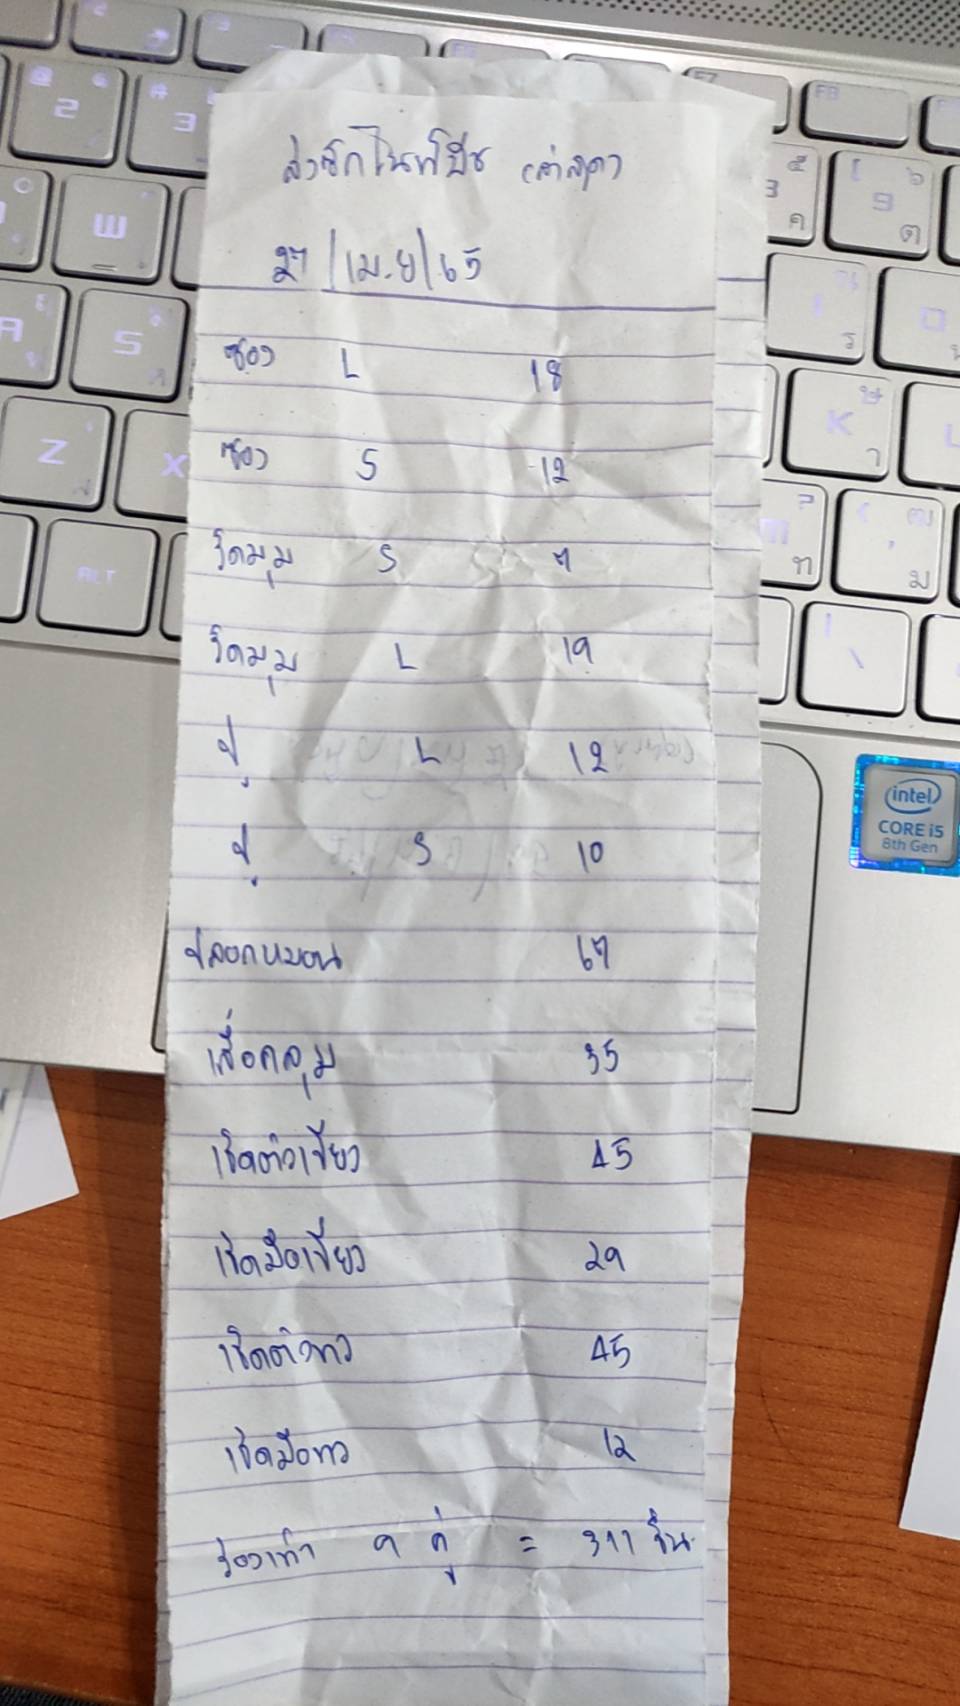 ส่งซักไนท์บีช
27/เม.ย/65
ซอง L 18
ซอง S 12
รัดมุม S 7
รัดมุม L 19
ปู L 12
ปู S 10
ปลอกหมอน 67
เสื้อคลุม 35
เช็ดตัวเขียว 45
เช็ดมือเขียว 29
เช็ดตัวขาว 45
เช็ดมือขาว 12
รองเท้า 9 คู่ = 311 ชิ้น
intel
CORE i5
8th Gen